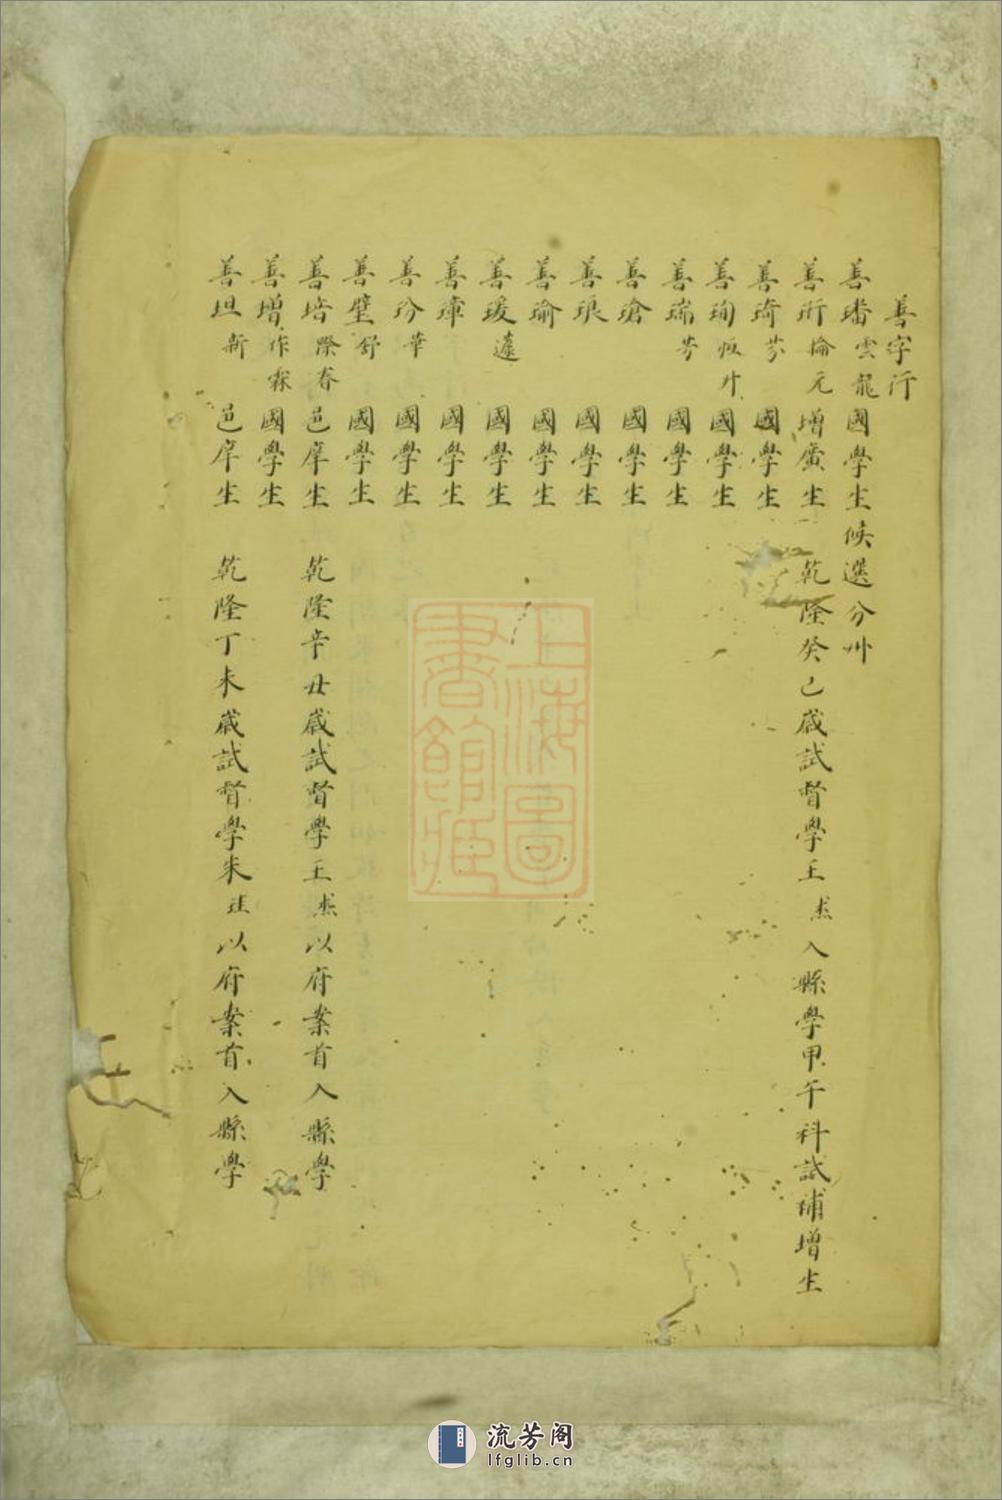 善字行
善璠 雲龍 國學生候選分州
善珩 掄元 增廣生 乾隆癸巳歲試督學王 杰 入縣學甲午科試補增生
善琦 芬 國學生
善珣 恆升 國學生
善瑞 芳 國學生
善瑲 國學生
善琅 國學生
善瑜 國學生
善瑗 蘧 國學生
善璋 國學生
善玢 華 國學生
善壁 舒 國學生
善培 際春 邑庠生 乾隆辛丑歲試督學王 杰 以府案首入縣學
善增 作霖 國學生
善坦 新 邑庠生 乾隆丁未歲試督學朱 珪 以府案首入縣學
上海圖書館藏
流芳阁
lfglib.cn